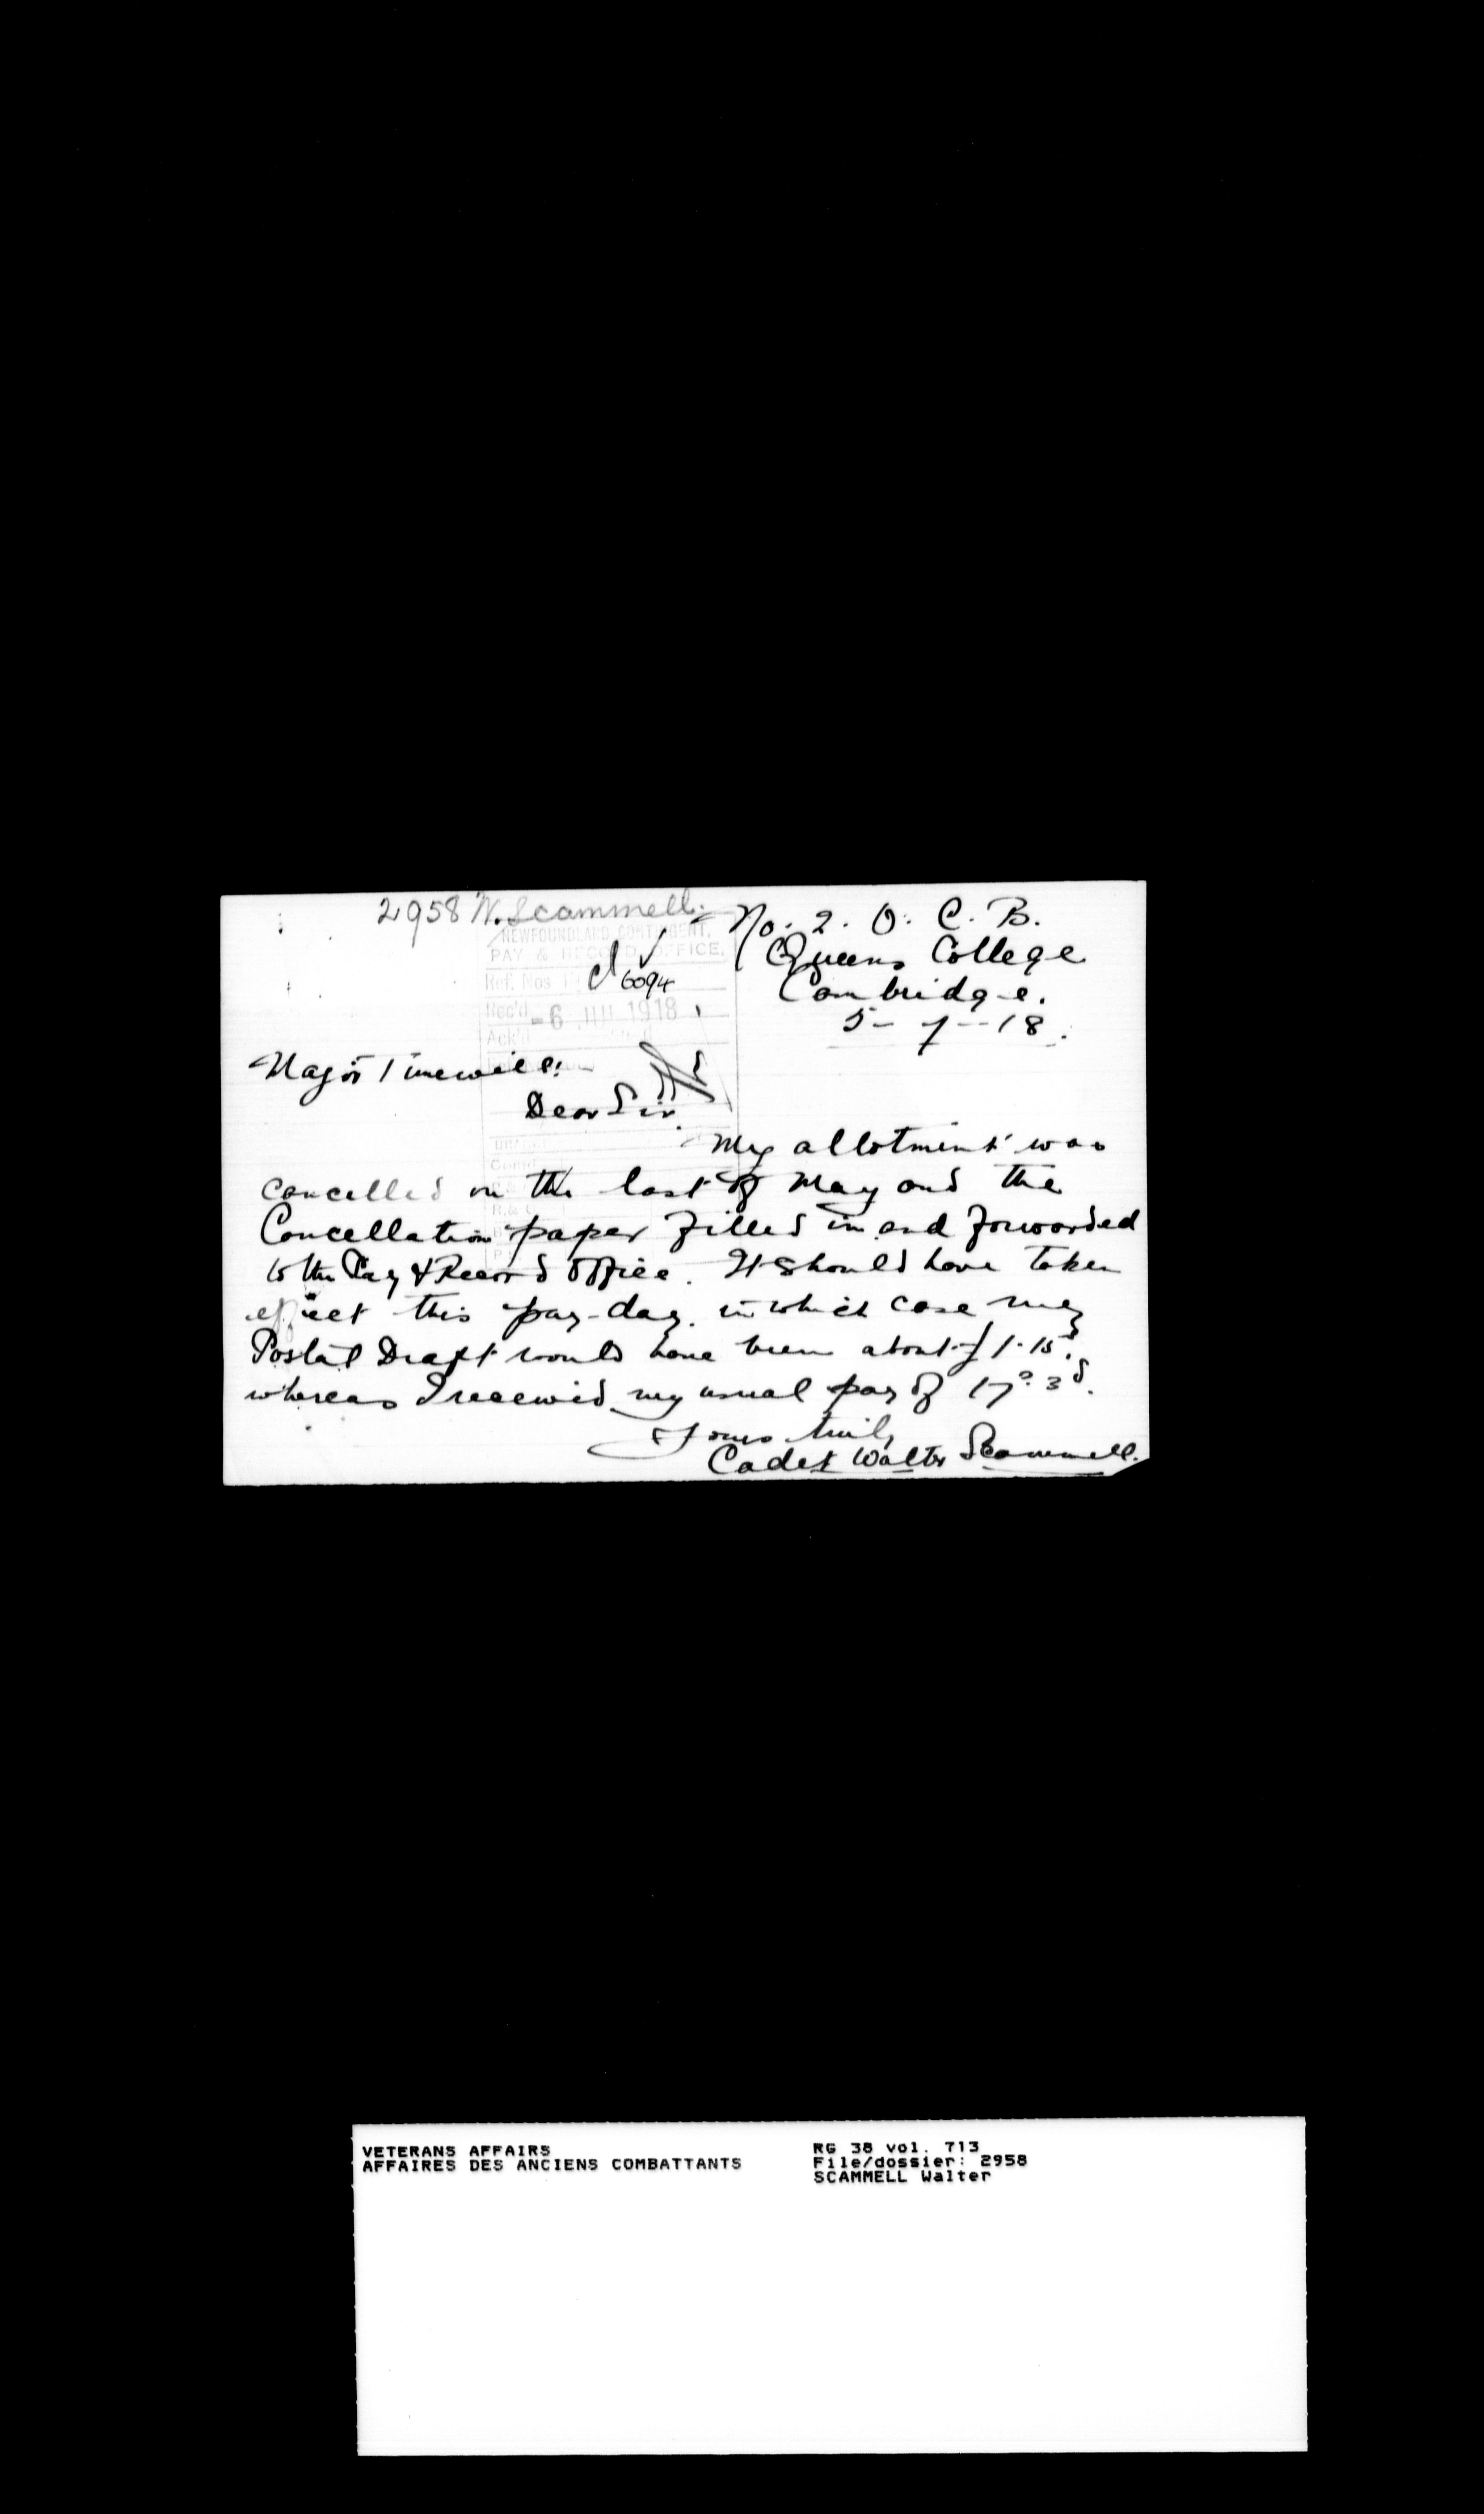 2958 W. Scammell.
No. 2. O. C. B.
Queens College
Cambridge.
5-7-18.
NEWFOUNDLAND CONTINGENT,
PAY & RECORD OFFICE,
Ref. Nos
6094
Rec'd -6 JUL 1918
Ack'd
Major Timewell:
Dear Sir,
My allotment was
cancelled on the last of May and the
Cancellation paper filled in and forwarded
to the Pay & Record Office. It should have taken
effect this pay-day. in which case my
Postal Draft would have been about £1-15s.
whereas I received my usual pay of 17s 3d.
Yours truly
Cadet Walter Scammell.
VETERANS AFFAIRS
AFFAIRES DES ANCIENS COMBATTANTS
RG 38 vol. 713
File/dossier: 2958
SCAMMELL Walter